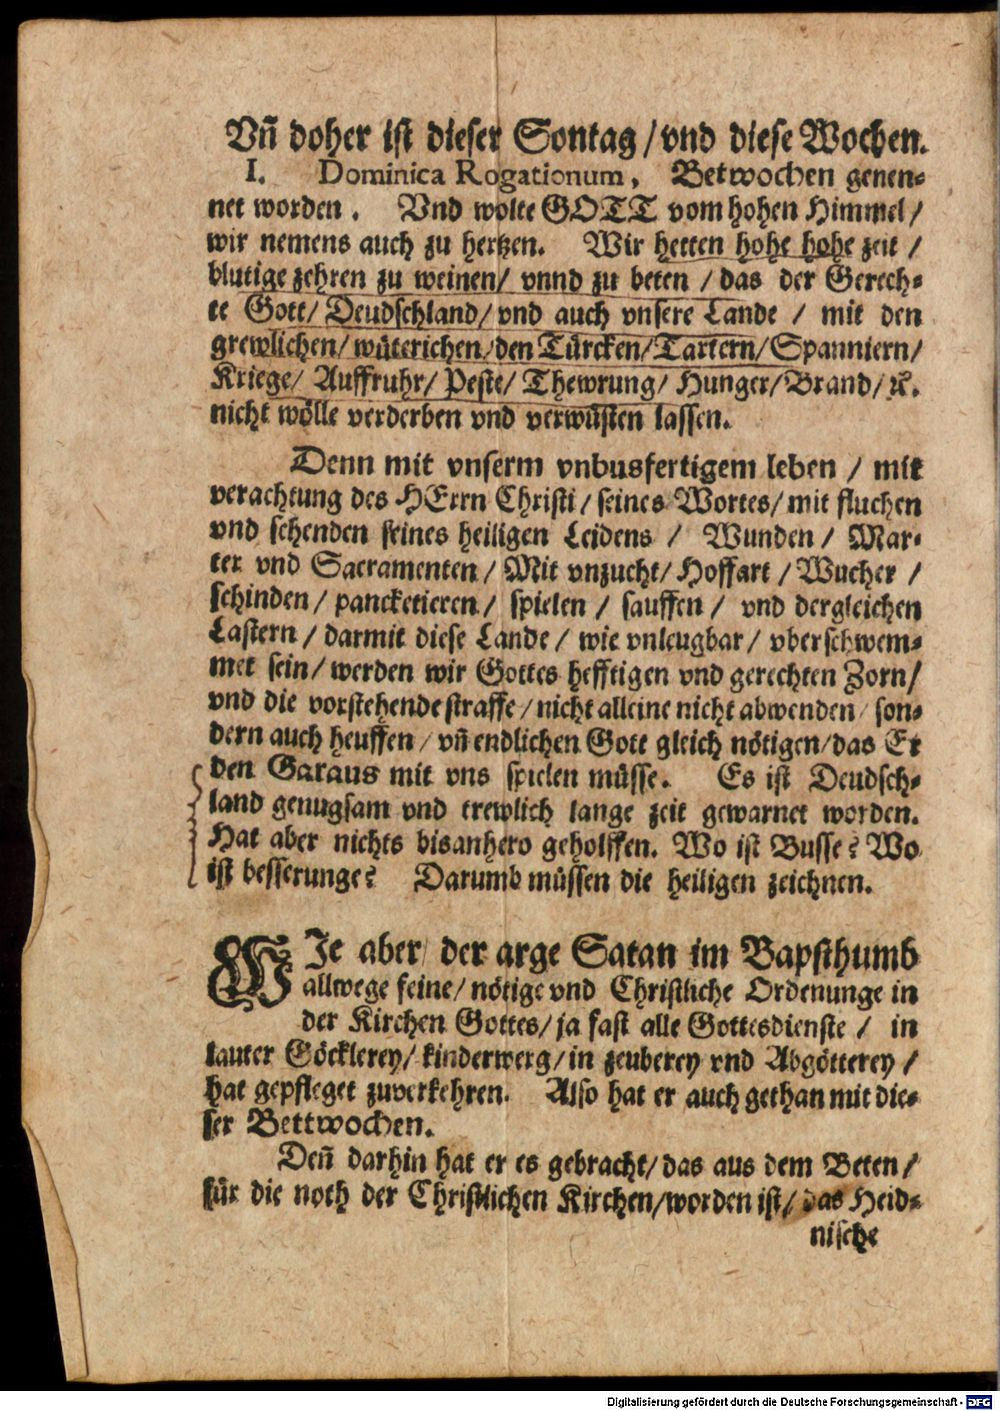 Vñ doher ist dieser Sontag / vnd diese Wochen.
I. Dominica Rogationum, Betwochen genen-
net worden. Vnd wolte GOTT vom hohen Himmel /
wir nemens auch zu hertzen. Wir hetten hohe hohe zeit /
blutige zehren zu weinen / vnnd zu beten / das der Gerech-
te Gott / Deudschland / vnd auch vnsere Lande / mit den
grewlichen / wüterichen / den Türcken / Tartern / Spanniern /
Kriege / Auffruhr / Peste / Thewrung / Hunger / Brand / ꝛc.
nicht wölle verderben vnd verwüsten lassen.
Denn mit vnserm vnbusfertigem leben / mit
verachtung des HErrn Christi / seines Wortes / mit fluchen
vnd schenden seines heiligen Leidens / Wunden / Mar-
ter vnd Sacramenten / Mit vnzucht / Hoffart / Wucher /
schinden / pancketieren / spielen / sauffen / vnd dergleichen
Lastern / darmit diese Lande / wie vnleugbar / vberschwem-
met sein / werden wir Gottes hefftigen vnd gerechten Zorn /
vnd die vorstehende straffe / nicht alleine nicht abwenden / son-
dern auch heuffen / vñ endlichen Gott gleich nötigen / das Er
den Garaus mit vns spielen müsse. Es ist Deudsch-
land genugsam vnd trewlich lange zeit gewarnet worden.
Hat aber nichts bisanhero geholffen. Wo ist Busse? Wo
ist besserunge? Darumb müssen die heiligen zeichnen.
WIe aber / der arge Satan im Bapsthumb
allwege feine / nötige vnd Christliche Ordenunge in
der Kirchen Gottes / ja fast alle Gottesdienste / in
lauter Göcklerey / kinderwerg / in zeuberey vnd Abgötterey /
hat gepfleget zuverkehren. Also hat er auch gethan mit die-
ser Bettwochen.
Deñ darhin hat er es gebracht / das aus dem Beten /
für die noth der Christlichen Kirchen / worden ist / das Heid-
nische
Digitalisierung gefördert durch die Deutsche Forschungsgemeinschaft - DFG